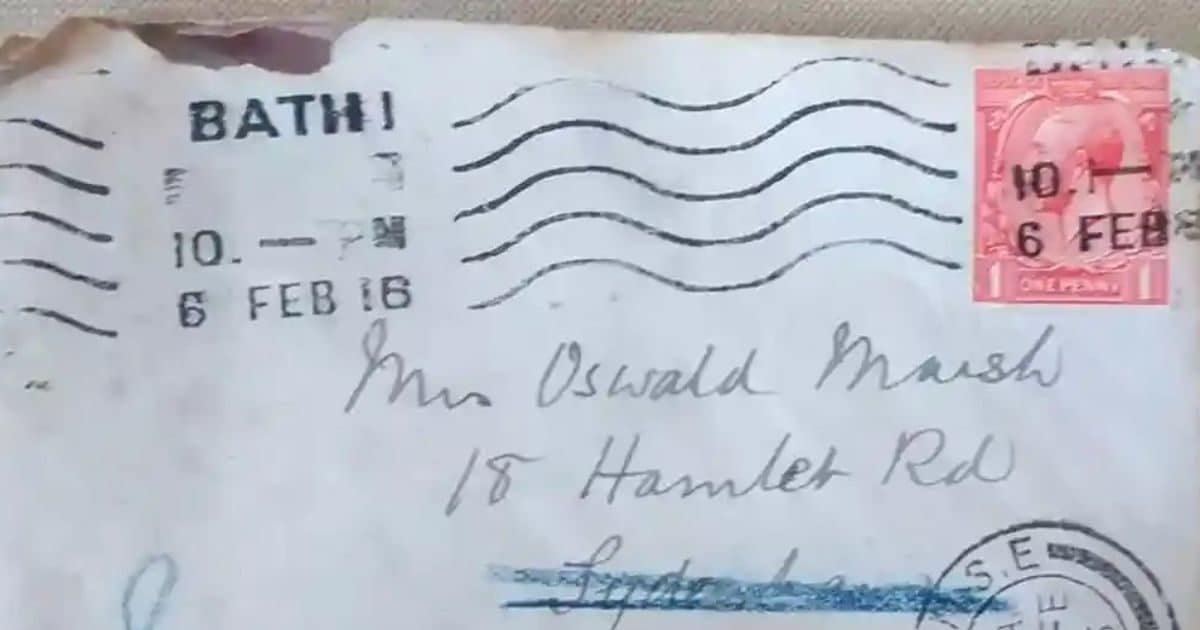 BATH 1
10. — PM
6 FEB 16
10.
6 FEB
1 ONE PENNY 1
Mrs Oswald Marsh
18 Hamlet Rd
Sydenham
S.E